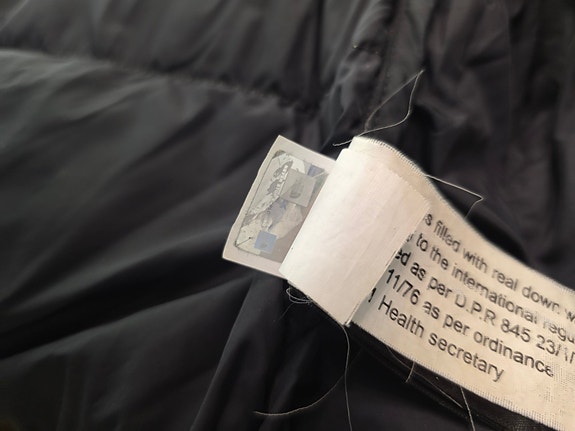 s filled with real down w
to the international regu
ed as per D.P.R 845 23/1/
11/76 as per ordinance
Health secretary